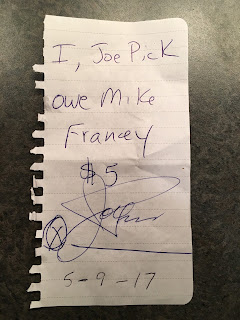 I, Joe Pick
owe Mike
Francey
$5
X
5-9-17